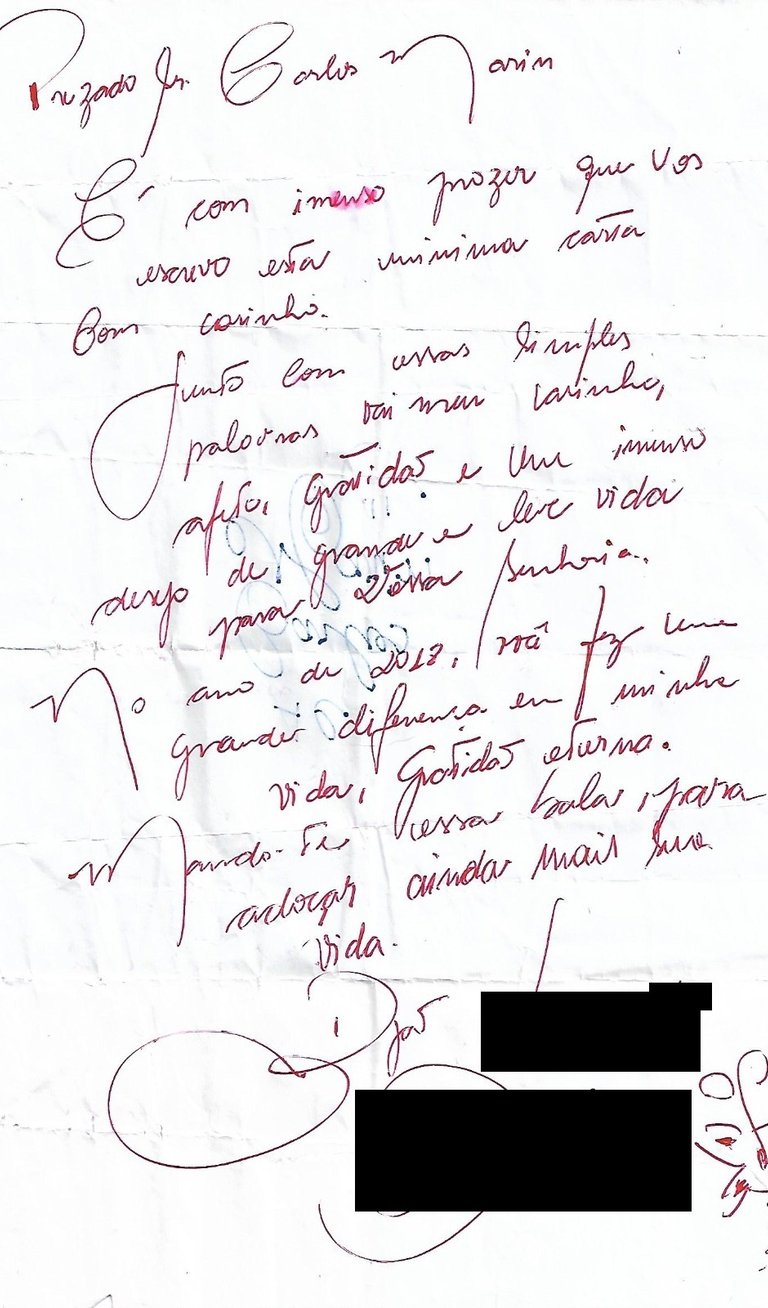 Prezado Sr. Carlos Marin
É com imenso prazer que vos
escrevo esta minima carta
Com carinho.
Junto com essas simples
palavras vai meu carinho,
afeto, gratidão e um imenso
desejo de grande e leve vida
para Vossa Senhoria.
No ano de 2018, você fez uma
grande diferença em minha
vida, Gratidão eterna.
Mando-te essa balas, para
adoçar ainda mais sua
vida.